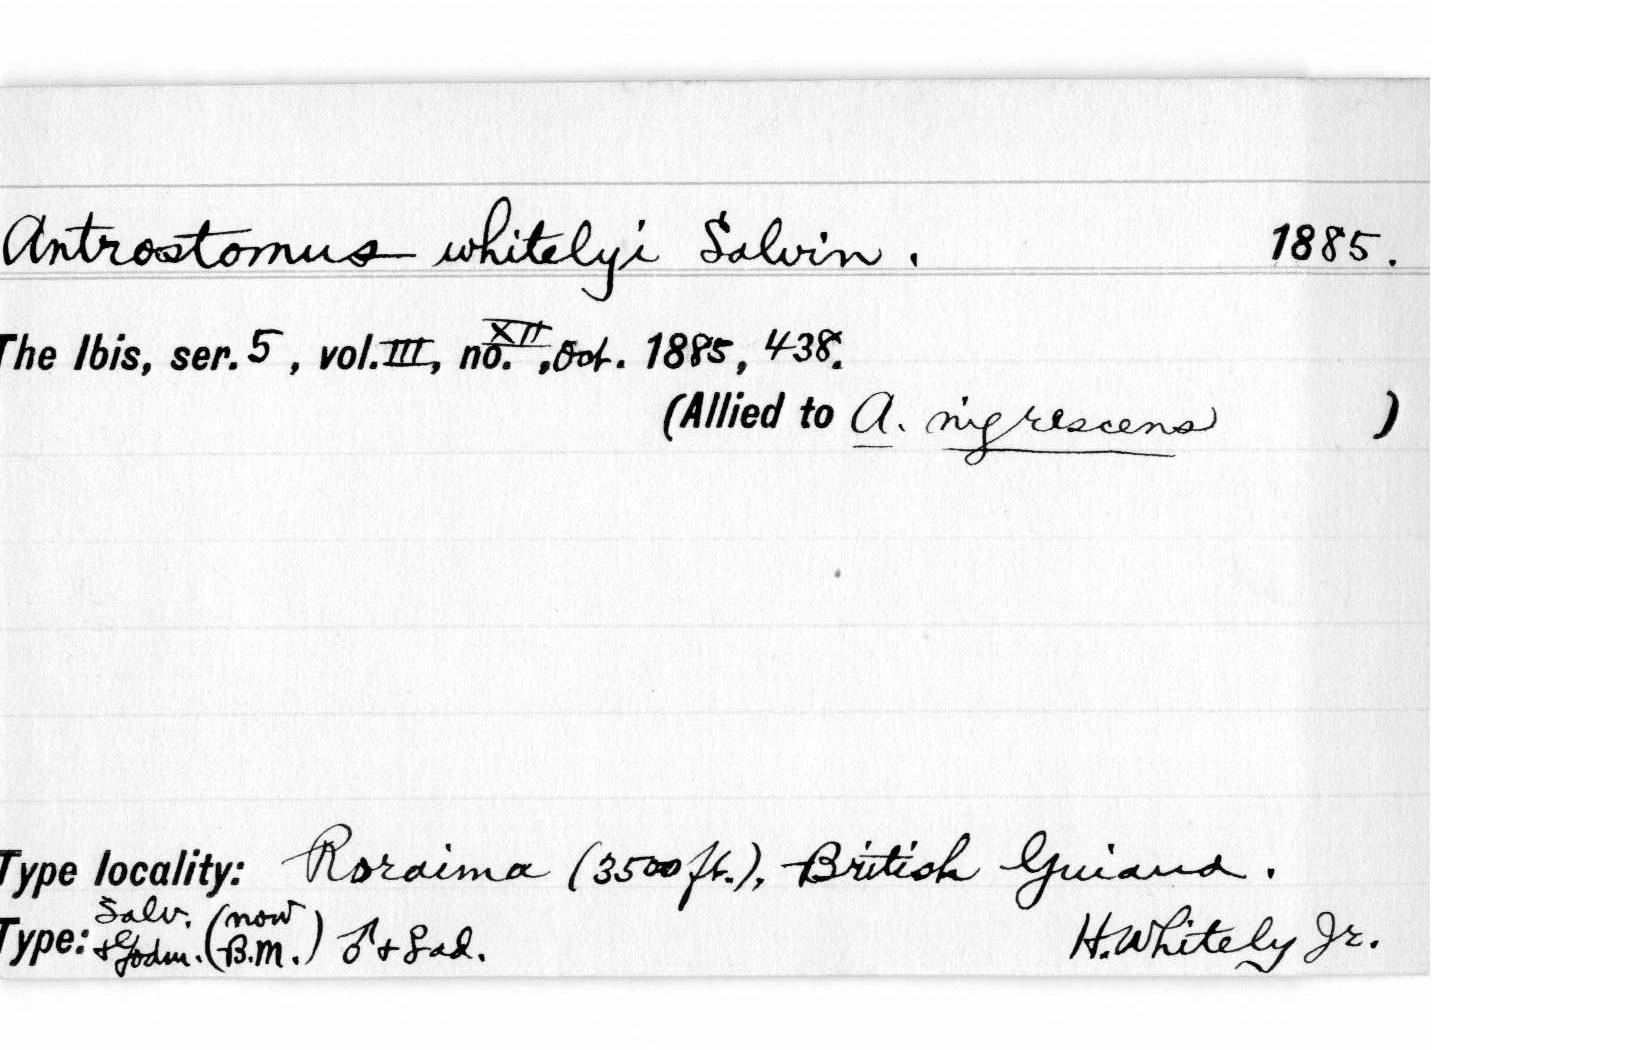 Antrostomus whitelyi Salvin. 1885.
The Ibis, ser. 5, vol. III, no. XII, Oct. 1885, 438.
(Allied to A. nigrescens )
Type locality: Roraima (3500 ft.), British Guiana.
Type: Salv. & Godm. (now B.M.) ♂ + ♀ ad. H. Whitely Jr.